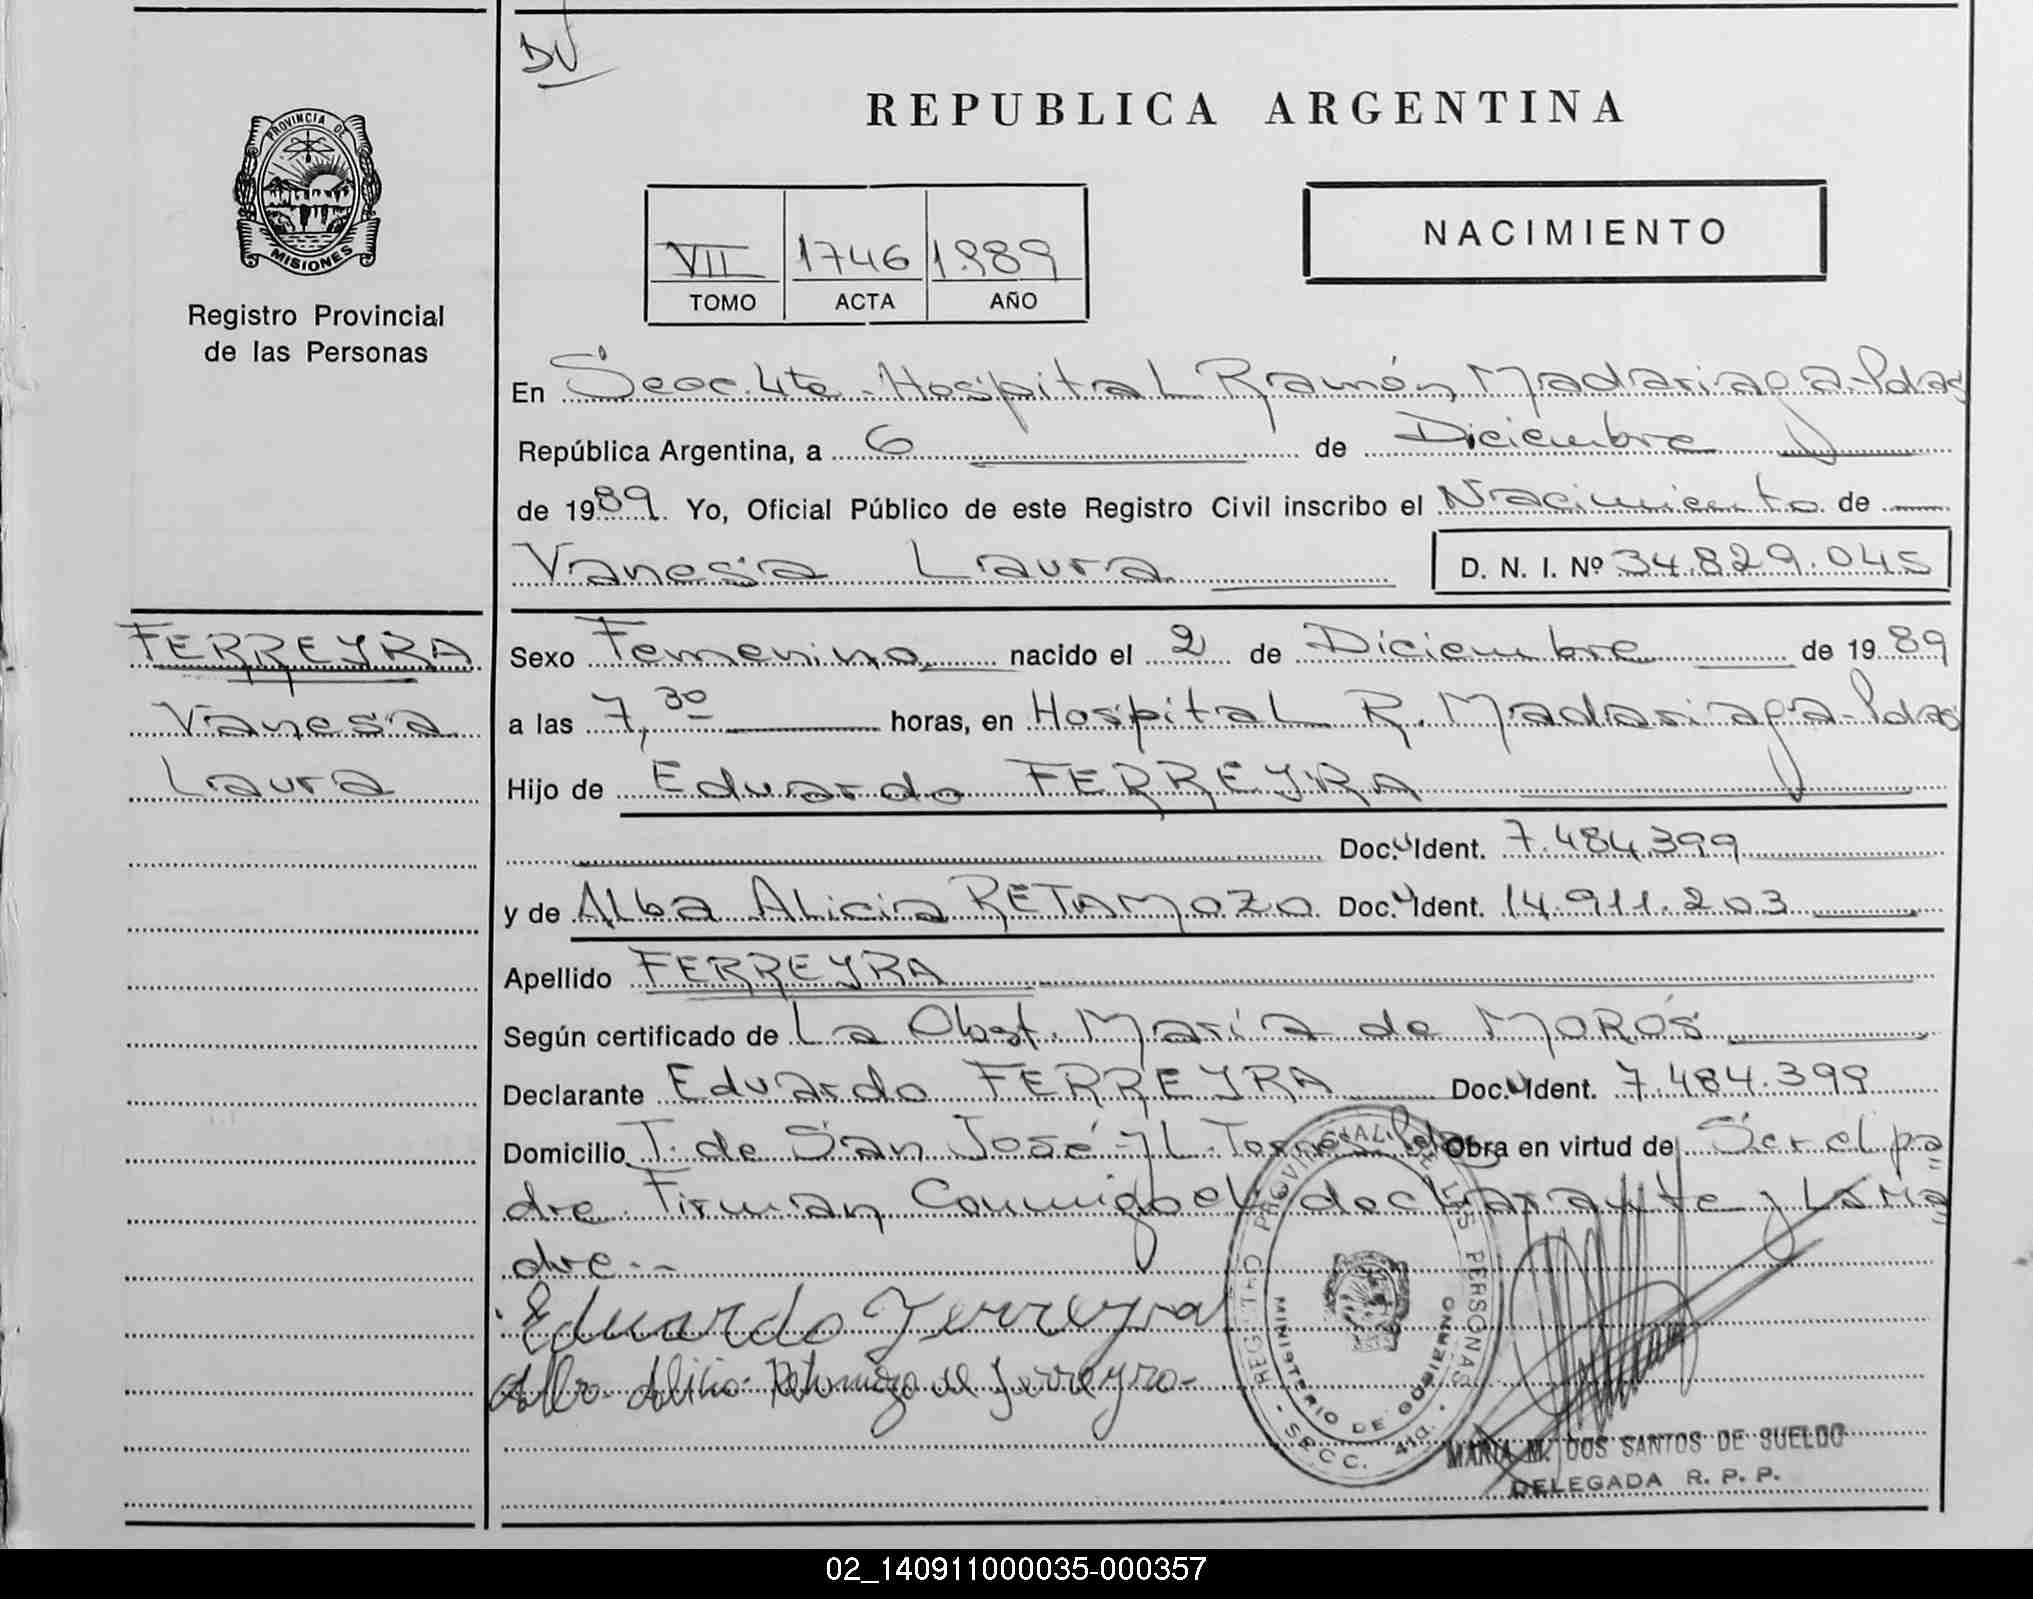 DV
REPUBLICA ARGENTINA
PROVINCIA DE
MISIONES
Registro Provincial
de las Personas
VII 1746 1989
TOMO ACTA AÑO
NACIMIENTO
En Secc. 4ta. Hospital Ramón Madariaga - Pdas
República Argentina, a 6 de Diciembre
de 1989. Yo, Oficial Público de este Registro Civil inscribo el Nacimiento de
Vanesa Laura D. N. I. Nº 34.829.045
FERREYRA
Vanesa
Laura
Sexo Femenino nacido el 2 de Diciembre de 1989
a las 7,30 horas, en Hospital R. Madariaga - Pdas
Hijo de Eduardo FERREYRA
Doc. Ident. 7.484.399
y de Alba Alicia RETAMOZO Doc. Ident. 14.911.203
Apellido FERREYRA
Según certificado de La Obst. María de MOROS
Declarante Eduardo FERREYRA Doc. Ident. 7.484.399
Domicilio T. de San José y L. Torres Obra en virtud de Ser el pa
dre Firman Conmigo el declarante y La Ma
dre.-
Eduardo Ferreyra
Alba Alicia Retamozo de Ferreyra-
REGISTRO PROVINCIAL DE LAS PERSONAS
MINISTERIO DE GOBIERNO
- SECC. 4ta. -
MARIA M. DOS SANTOS DE SUELDO
DELEGADA R. P. P.
02_140911000035-000357